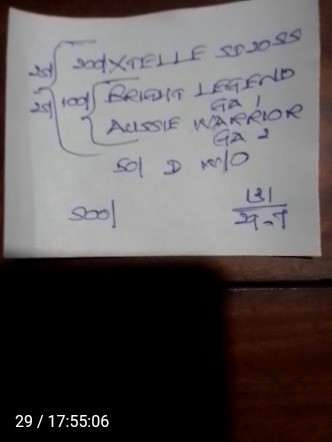 200/ XTELLE SD20SS
100/ BRIGHT LEGEND
GA 1
AUSSIE WARRIOR
GA 2
50/ D W/O
500/
131
29 / 17:55:06